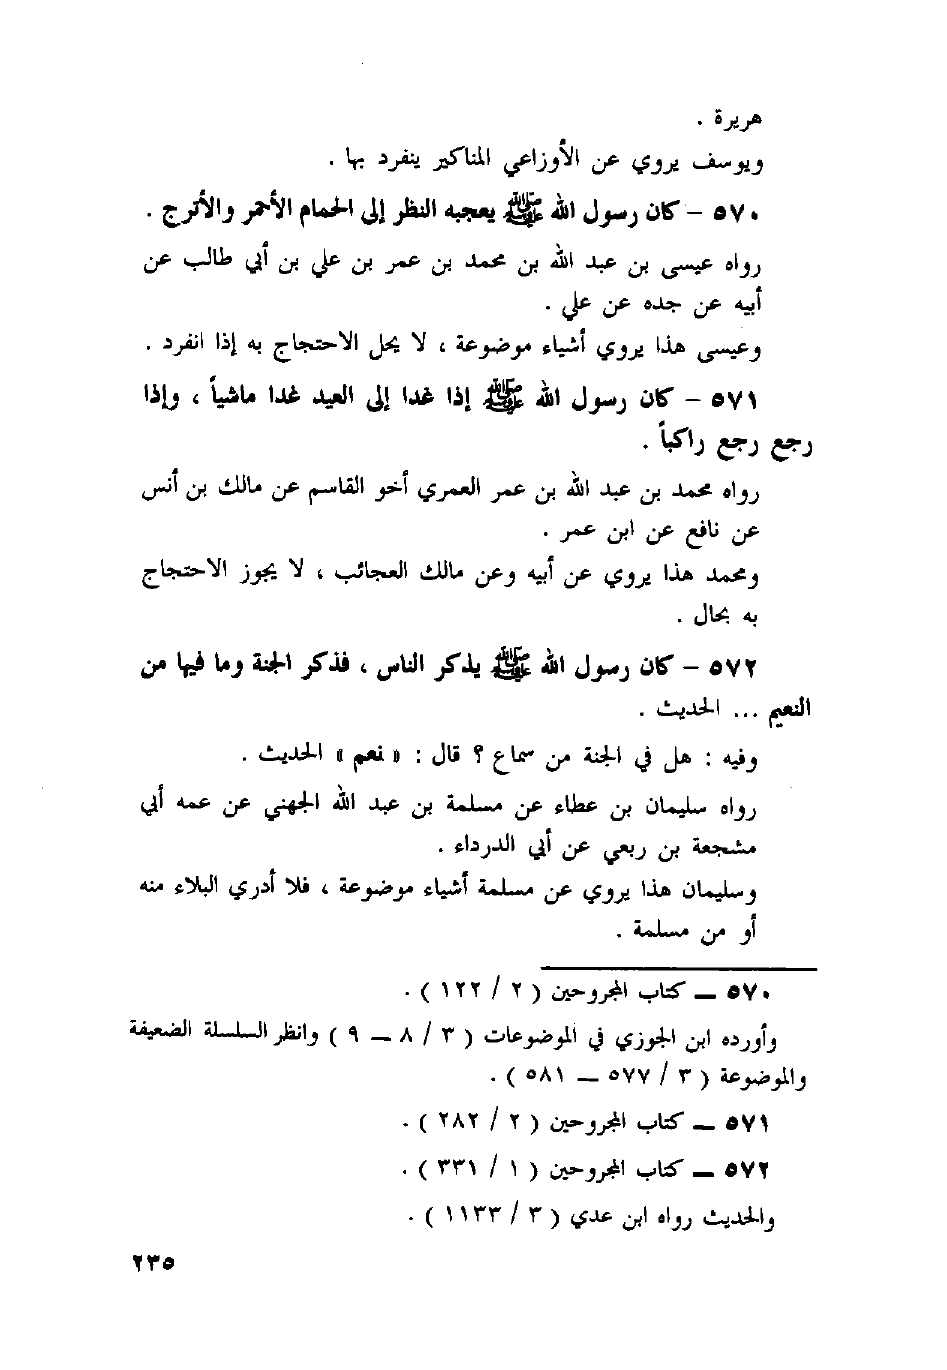 هريرة .
ويوسف يروي عن الأوزاعي المناكير ينفرد بها .
٥٧٠ - كان رسول الله ﷺ يعجبه النظر إلى الحمام الأحمر والأترج .
رواه عيسى بن عبد الله بن محمد بن عمر بن علي بن أبي طالب عن
أبيه عن جده عن علي .
وعيسى هذا يروي أشياء موضوعة ، لا يحل الاحتجاج به إذا انفرد .
٥٧١ - كان رسول الله ﷺ إذا غدا إلى العيد غدا ماشياً ، وإذا
رجع رجع راكباً .
رواه محمد بن عبد الله بن عمر العمري أخو القاسم عن مالك بن أنس
عن نافع عن ابن عمر .
ومحمد هذا يروي عن أبيه وعن مالك العجائب ، لا يجوز الاحتجاج
به بحال .
٥٧٢ - كان رسول الله ﷺ يذكر الناس ، فذكر الجنة وما فيها من
النعيم ... الحديث .
وفيه : هل في الجنة من سماع ؟ قال : « نعم » الحديث .
رواه سليمان بن عطاء عن مسلمة بن عبد الله الجهني عن عمه أبي
مشجعة بن ربعي عن أبي الدرداء .
وسليمان هذا يروي عن مسلمة أشياء موضوعة ، فلا أدري البلاء منه
أو من مسلمة .
٥٧٠ ــ كتاب المجروحين ( ٢ / ١٢٢ ) .
وأورده ابن الجوزي في الموضوعات ( ٣ / ٨ ــ ٩ ) وانظر السلسلة الضعيفة
والموضوعة ( ٣ / ٥٧٧ ــ ٥٨١ ) .
٥٧١ ــ كتاب المجروحين ( ٢ / ٢٨٢ ) .
٥٧٢ ــ كتاب المجروحين ( ١ / ٣٣١ ) .
والحديث رواه ابن عدي ( ٣ / ١١٣٣ ) .
٢٣٥